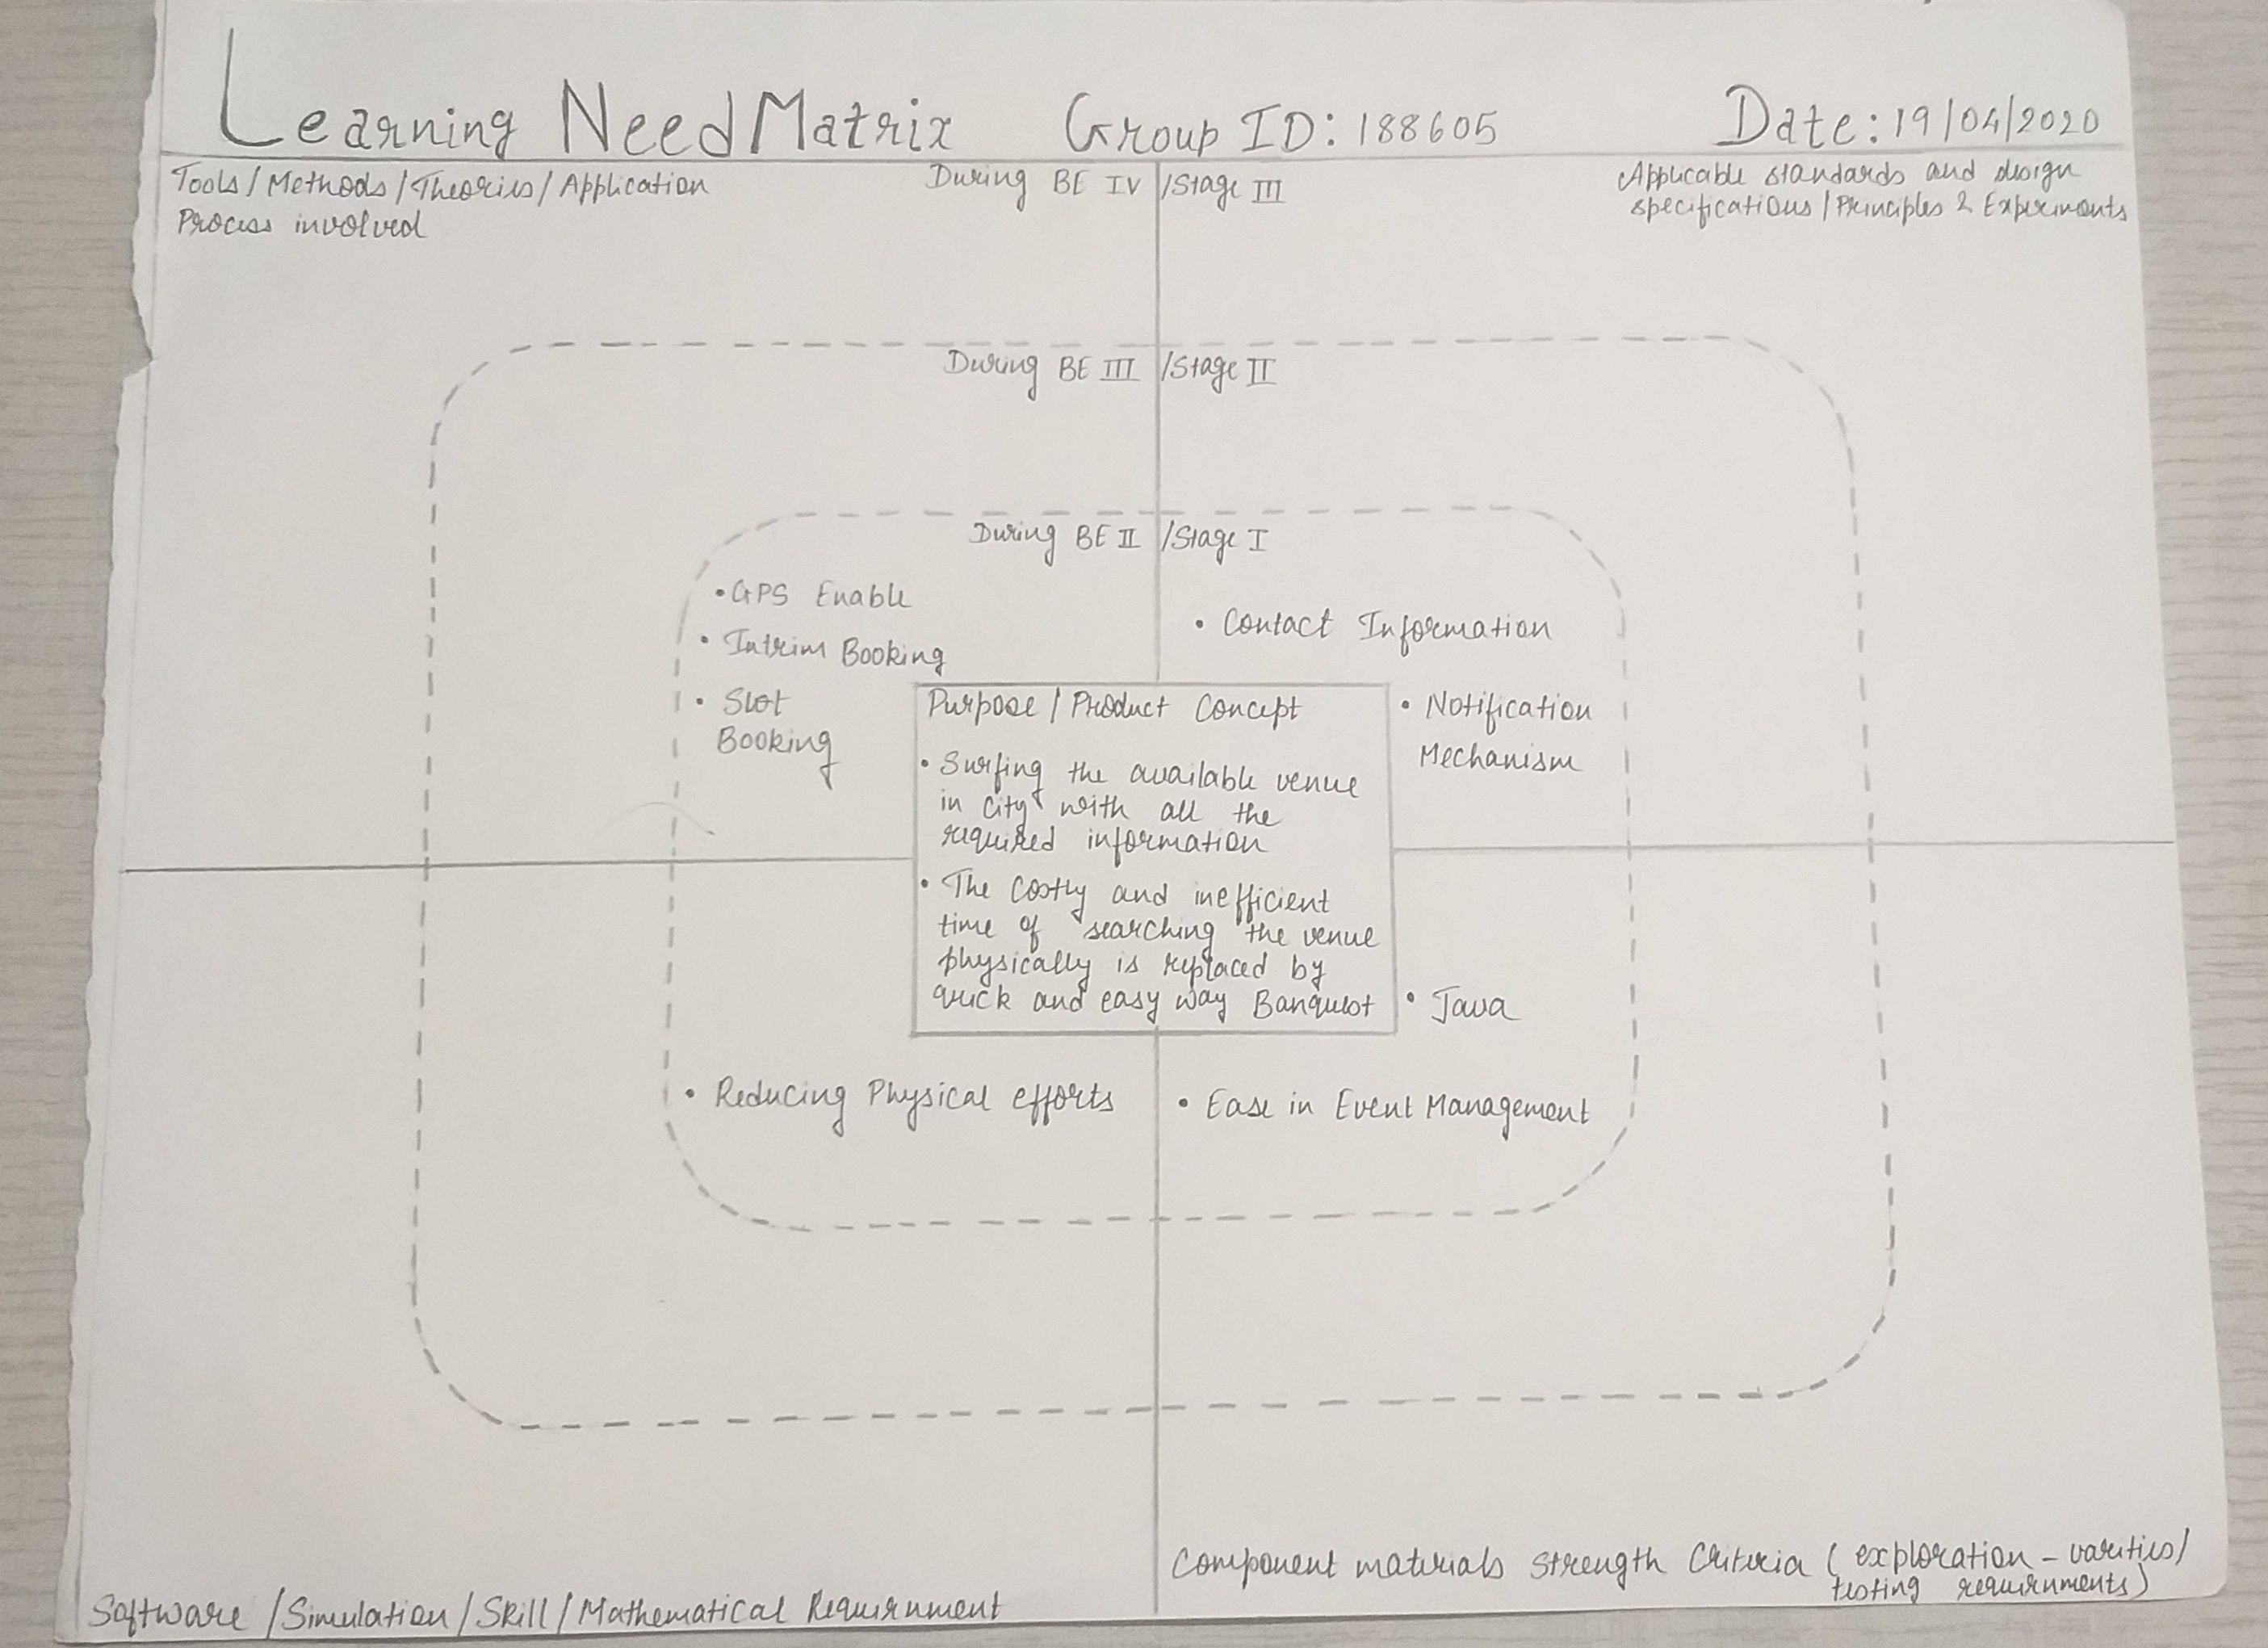 Learning Need Matrix Group ID: 188605 Date: 19/04/2020
Tools / Methods / Theories / Application
Process involved
During BE IV / Stage III
Applicable standards and design
specifications / Principles & Experiments
During BE III / Stage II
During BE II / Stage I
• GPS Enable
• Intrim Booking
• Slot
Booking
• Contact Information
• Notification
Mechanism
Purpose / Product Concept
• Surfing the available venue
in city with all the
required information
• The costly and inefficient
time of searching the venue
physically is replaced by
quick and easy way Banqueot
• Java
• Reducing Physical efforts
• Ease in Event Management
Software / Simulation / Skill / Mathematical Requirnment
Component materials strength Criteria ( exploration - varities /
testing requirnments )